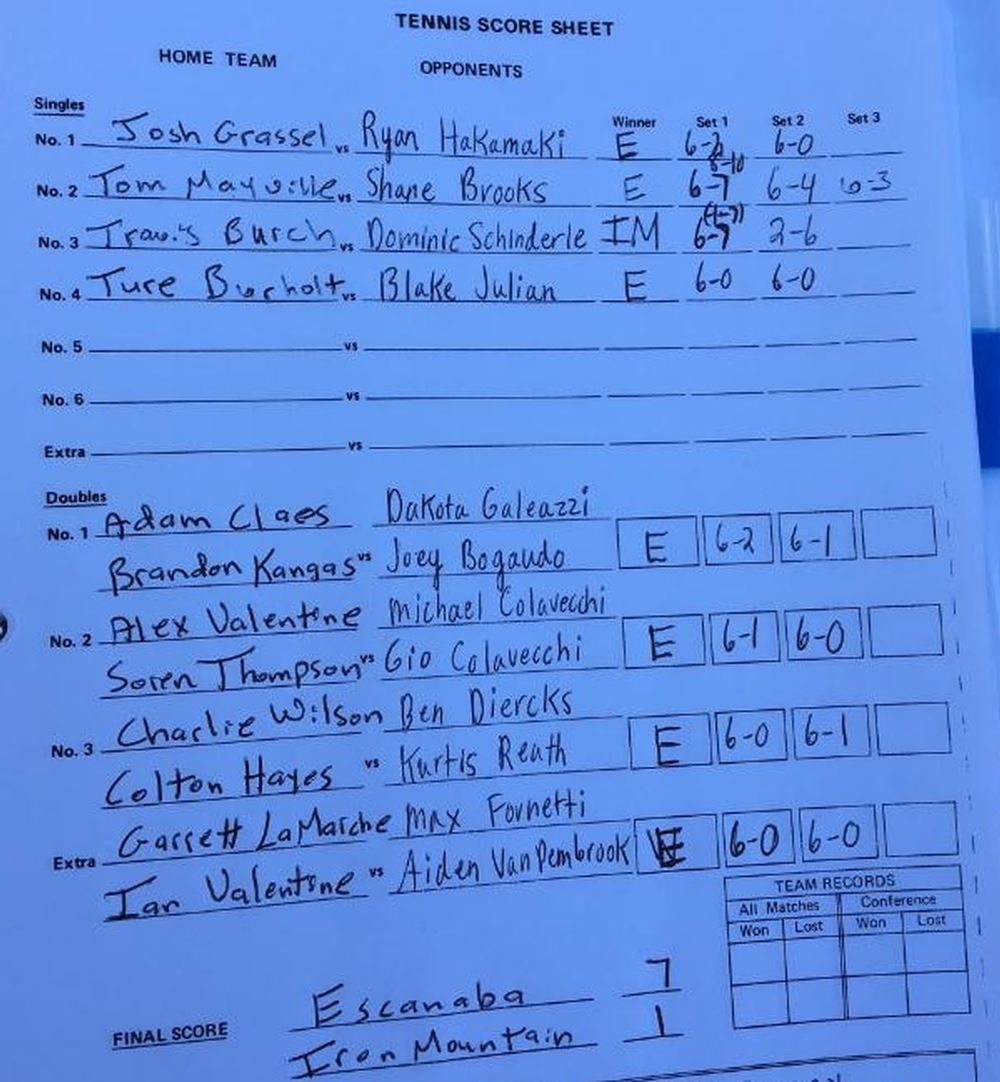 TENNIS SCORE SHEET
HOME TEAM OPPONENTS
Singles Winner Set 1 Set 2 Set 3
No. 1 Josh Grassel vs Ryan Hakamaki E 6-2 6-0
8-10
No. 2 Tom Mayville vs Shane Brooks E 6-7 6-4 6-3
(4-7)
No. 3 Travis Burch vs Dominic Schinderle IM 6-7 2-6
No. 4 Ture Bucholt vs Blake Julian E 6-0 6-0
No. 5 vs
No. 6 vs
Extra vs
Doubles
No. 1 Adam Claes Dakota Galeazzi
Brandon Kangas vs Joey Bogaudo E 6-2 6-1
No. 2 Alex Valentine Michael Colavecchi
Soren Thompson vs Gio Colavecchi E 6-1 6-0
No. 3 Charlie Wilson Ben Diercks
Colton Hayes vs Kurtis Reath E 6-0 6-1
Extra Garrett LaMarche Max Fornetti
Ian Valentine vs Aiden VanPembrook E 6-0 6-0
TEAM RECORDS
All Matches Conference
Won Lost Won Lost
FINAL SCORE Escanaba 7
Iron Mountain 1